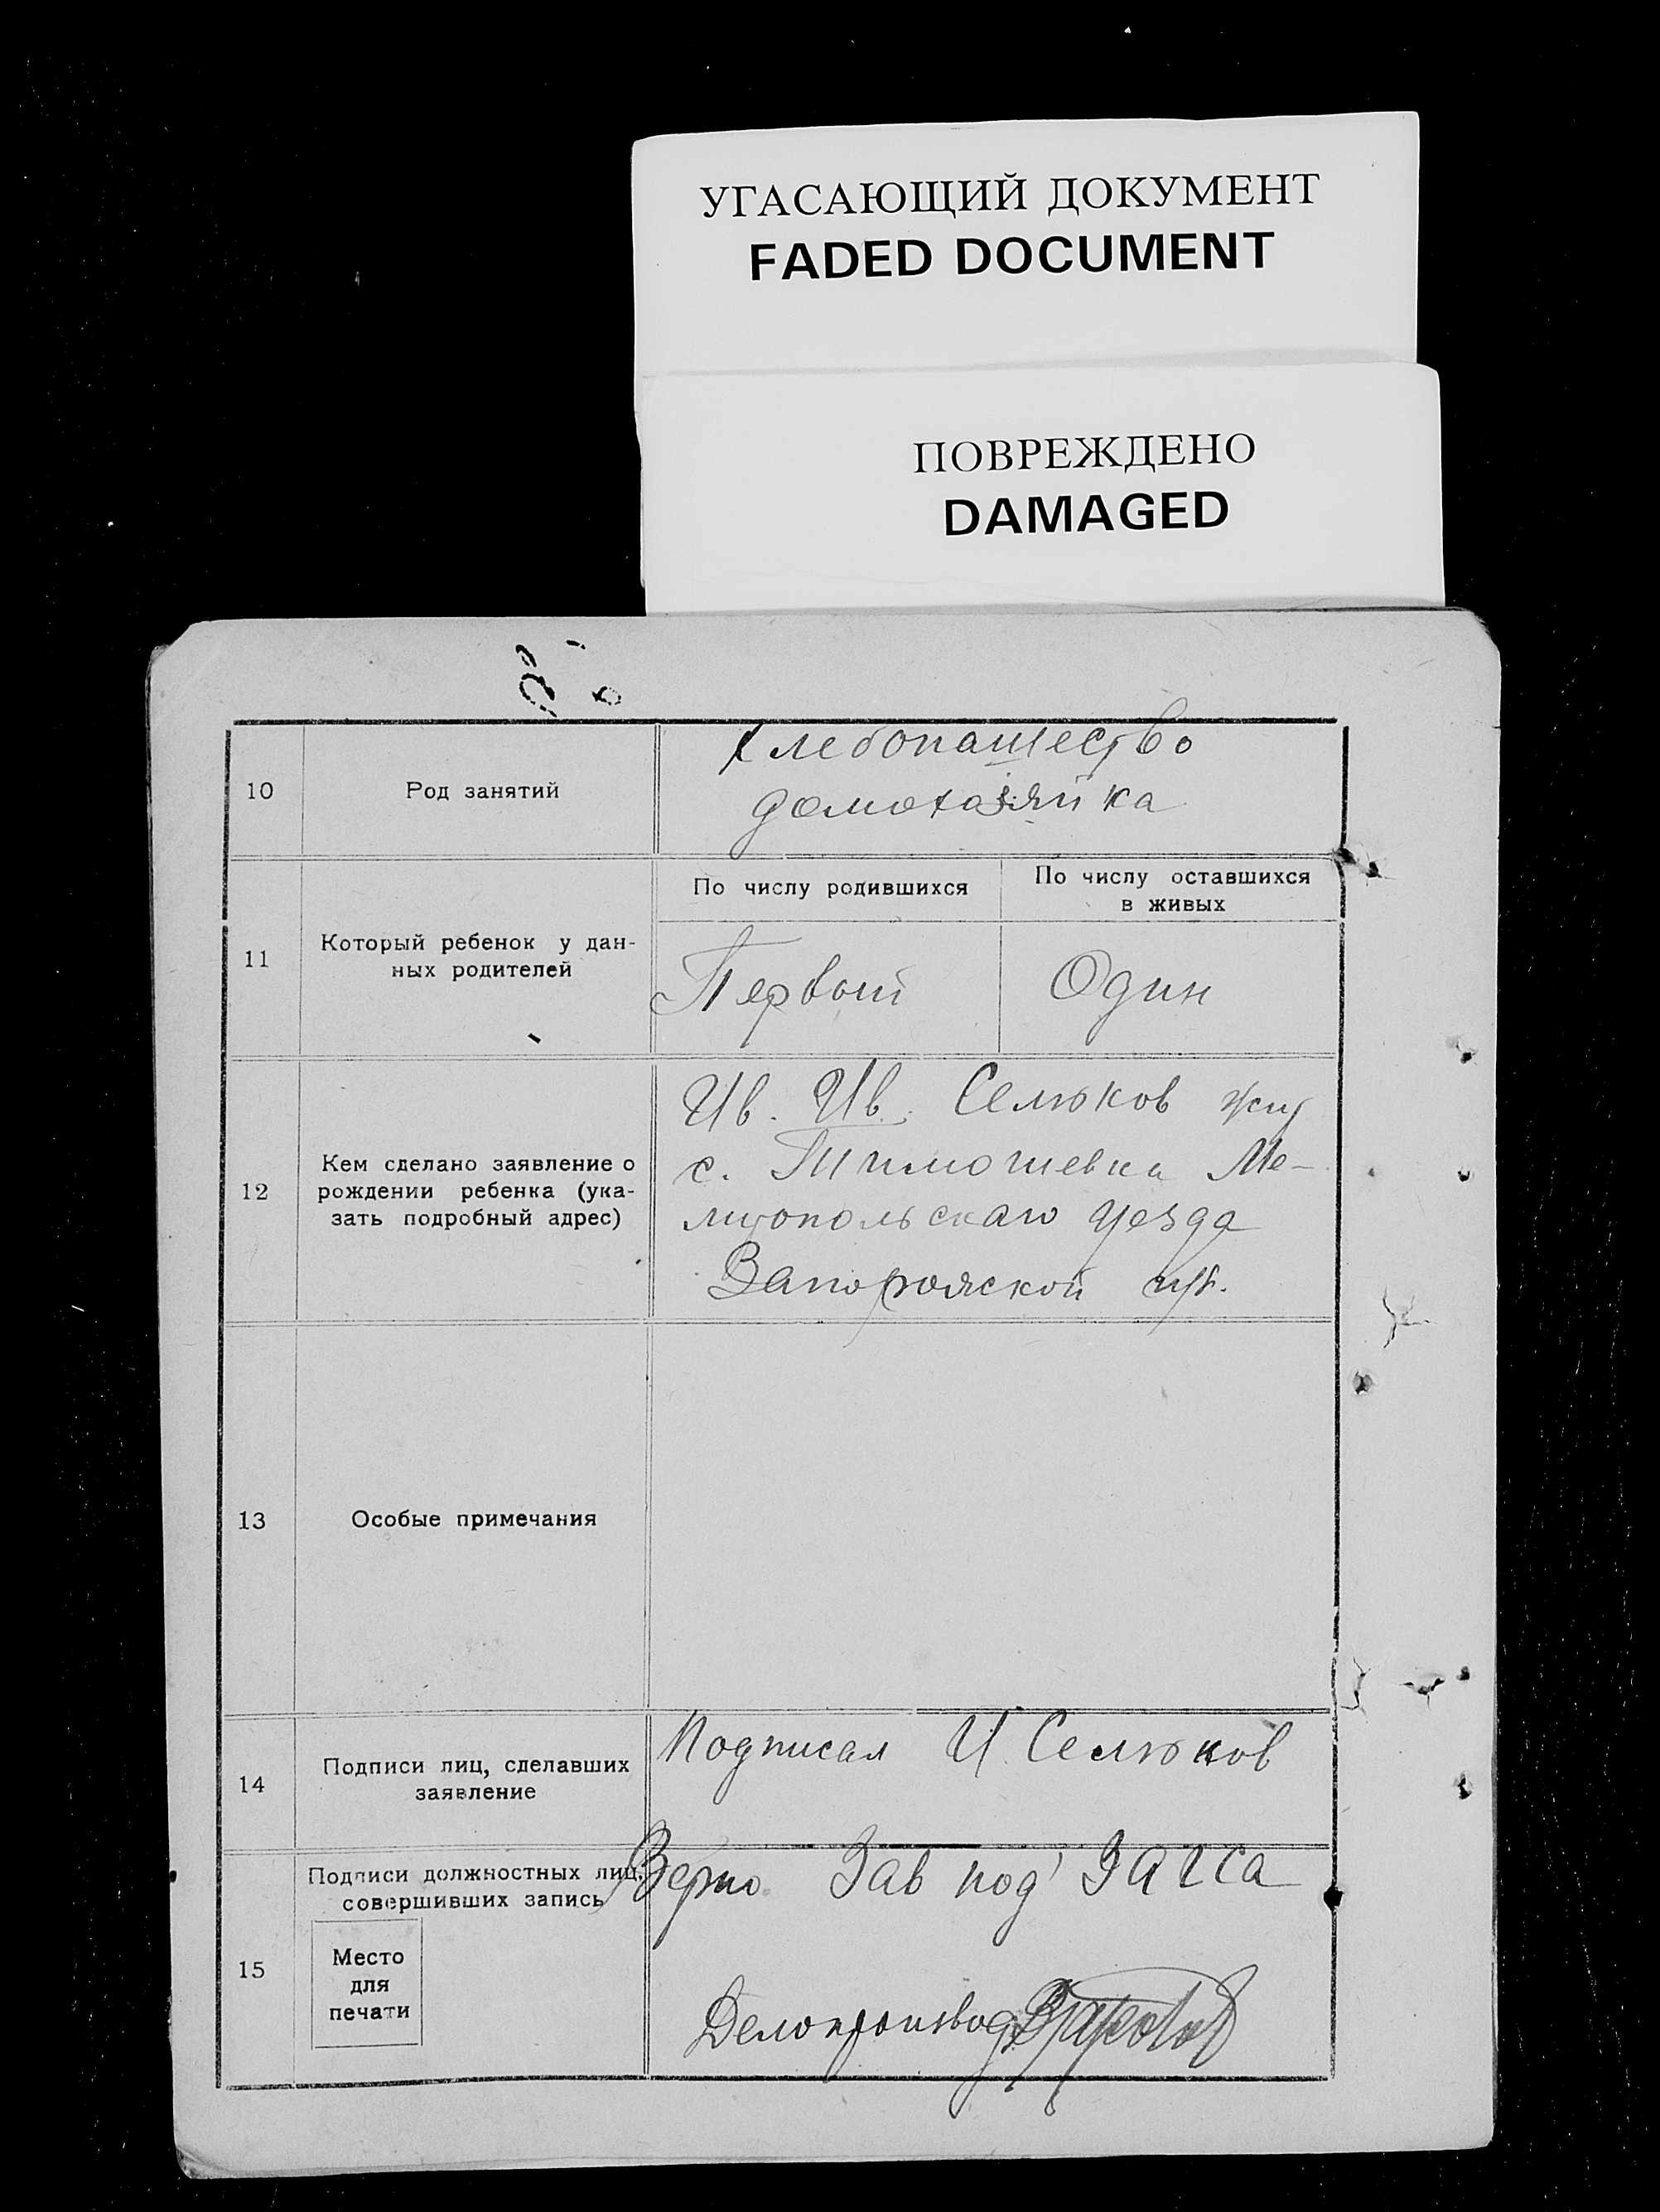 УГАСАЮЩИЙ ДОКУМЕНТ
FADED DOCUMENT
ПОВРЕЖДЕНО
DAMAGED
10
Род занятий
Хлебопашество
домохозяйка
11
Который ребенок у дан-
ных родителей
По числу родившихся
По числу оставшихся
в живых
Первый
Один
12
Кем сделано заявление о
рождении ребенка (ука-
зать подробный адрес)
Ив. Ив. Селюков жит
с. Тимошевка Ме-
литопольскаго уезда
Запорожской губ.
13
Особые примечания
14
Подписи лиц, сделавших
заявление
Подписал И Селюков
15
Подписи должностных лиц,
совершивших запись
Место
для
печати
Верно Зав под ЗАГСа
Делопроизвод